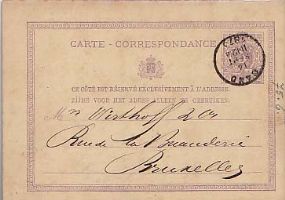 CARTE - CORRESPONDANCE
CE CÔTÉ EST RÉSERVÉ EXCLUSIVEMENT À L'ADRESSE.
ZIJDE VOOR HET ADRES ALLEEN TE GEBRUIKEN.
GAND
Werthoff & Co
Rue de la Buanderie
Bruxelles